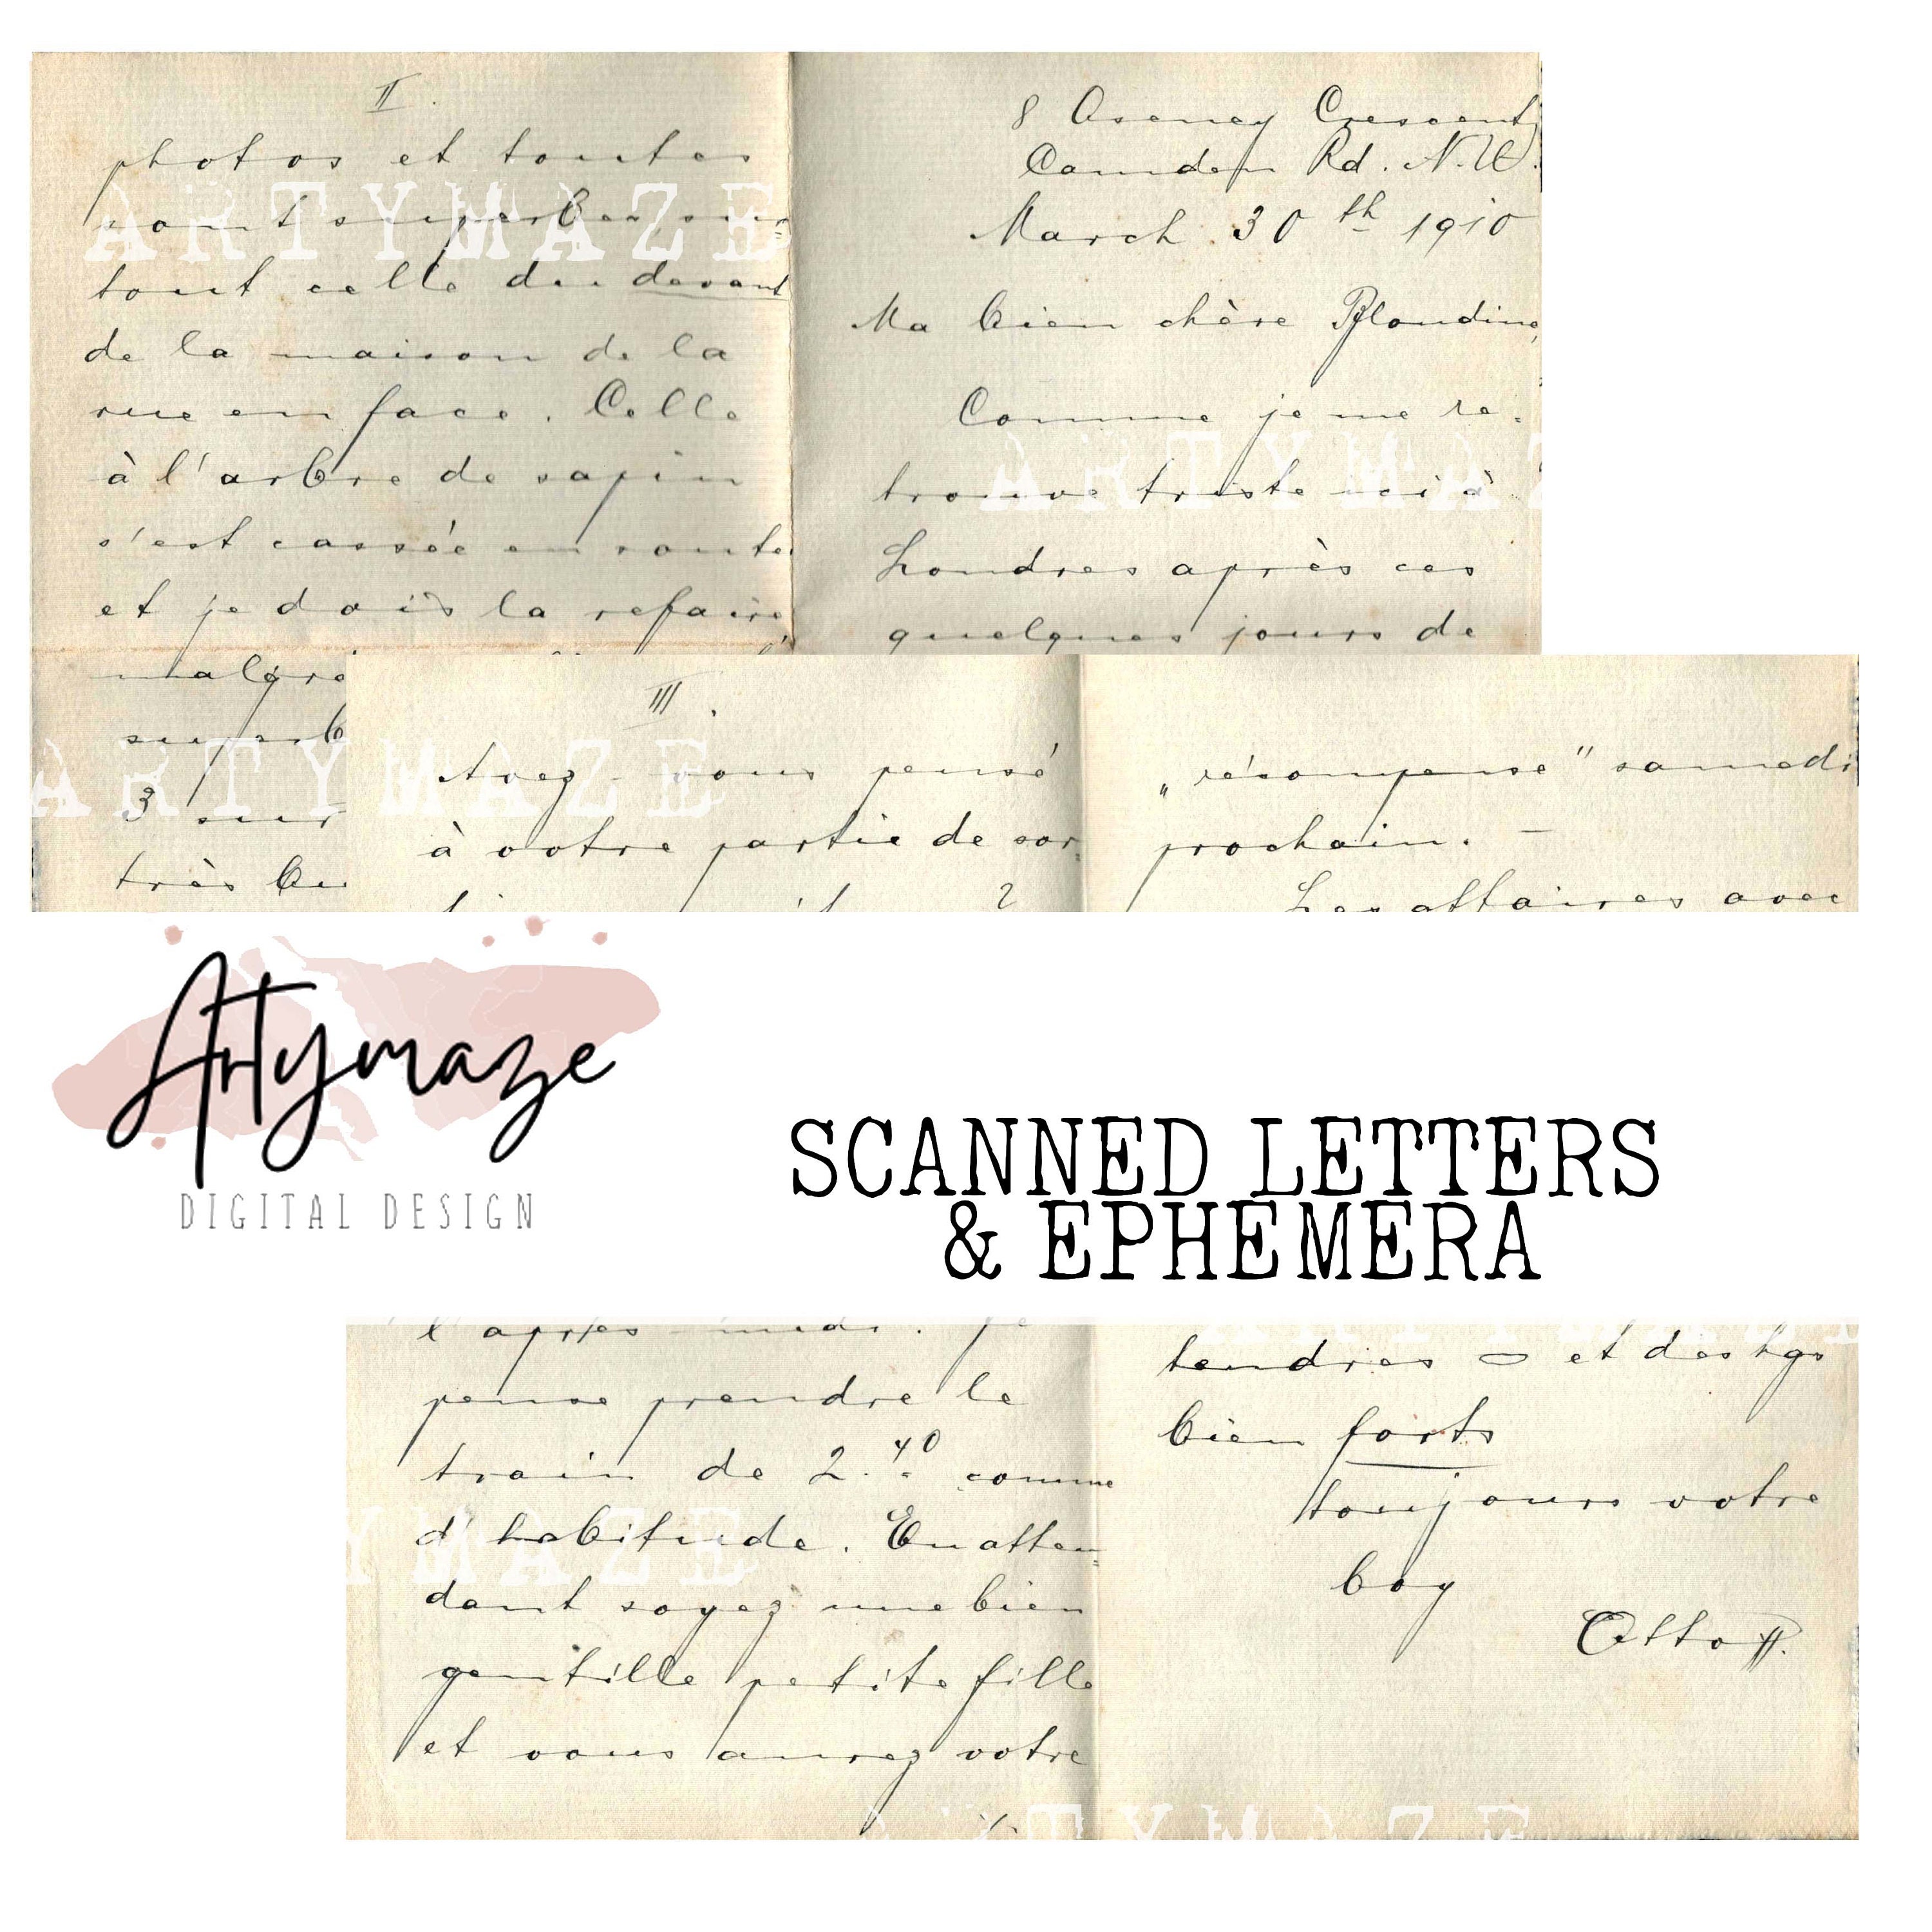 II.
photos et toutes
sont superbes, sur=
tout celle du devant
de la maison de la
rue en face. Celle
à l'arbre de sapin
s'est cassée en route
et je dois la refaire
malgré
superb
3 sur
très
8 Crescent
Camden Rd. N.W.
March 30th 1910
Ma bien chère Blondine,
Comme je me re-
trouve triste ici à
Londres après ces
quelques jours de
III.
Avez-vous pensé
à votre partie de sor=
?
„récompense" samedi
prochain. —
Les affaires avec
Artymaze
DIGITAL DESIGN
SCANNED LETTERS
& EPHEMERA
l'après-midi. Je
pense prendre le
train de 2.40 comme
d'habitude. En atten=
dant soyez une bien
gentille petite fille
et vous aurez votre
tendres et des
bien forts
toujours votre
boy
Otto
ARTYMAZE
ARTYMAZ
ARTYMAZE
YMAZE
ARTYMAZE